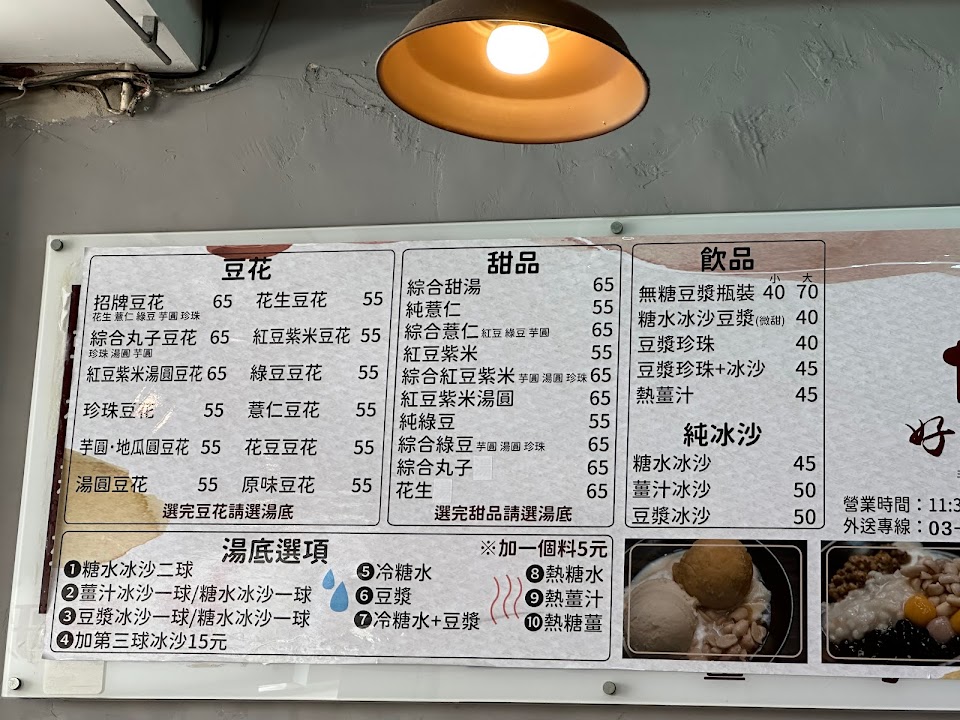 豆花
招牌豆花 65
花生 薏仁 綠豆 芋圓 珍珠
綜合丸子豆花 65
珍珠 湯圓 芋圓
紅豆紫米湯圓豆花 65
珍珠豆花 55
芋圓·地瓜圓豆花 55
湯圓豆花 55
花生豆花 55
紅豆紫米豆花 55
綠豆豆花 55
薏仁豆花 55
花豆豆花 55
原味豆花 55
選完豆花請選湯底
甜品
綜合甜湯 65
純薏仁 55
綜合薏仁 紅豆 綠豆 芋圓 65
紅豆紫米 55
綜合紅豆紫米 芋圓 湯圓 珍珠 65
紅豆紫米湯圓 65
純綠豆 55
綜合綠豆 芋圓 湯圓 珍珠 65
綜合丸子 65
花生 65
選完甜品請選湯底
飲品
小 大
無糖豆漿瓶裝 40 70
糖水冰沙豆漿(微甜) 40
豆漿珍珠 40
豆漿珍珠+冰沙 45
熱薑汁 45
純冰沙
糖水冰沙 45
薑汁冰沙 50
豆漿冰沙 50
湯底選項
※加一個料5元
❶糖水冰沙二球
❷薑汁冰沙一球/糖水冰沙一球
❸豆漿冰沙一球/糖水冰沙一球
❹加第三球冰沙15元
❺冷糖水
❻豆漿
❼冷糖水+豆漿
❽熱糖水
❾熱薑汁
❿熱糖薑
好
營業時間：11:3
外送專線：03-